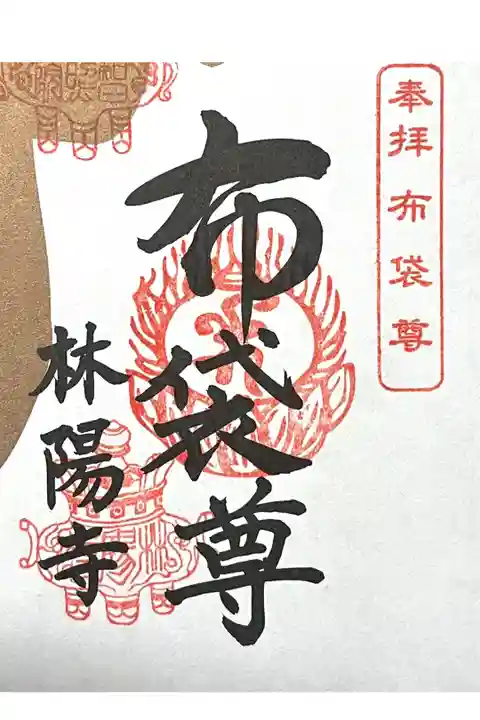 奉拝布袋尊
布袋尊
林陽寺